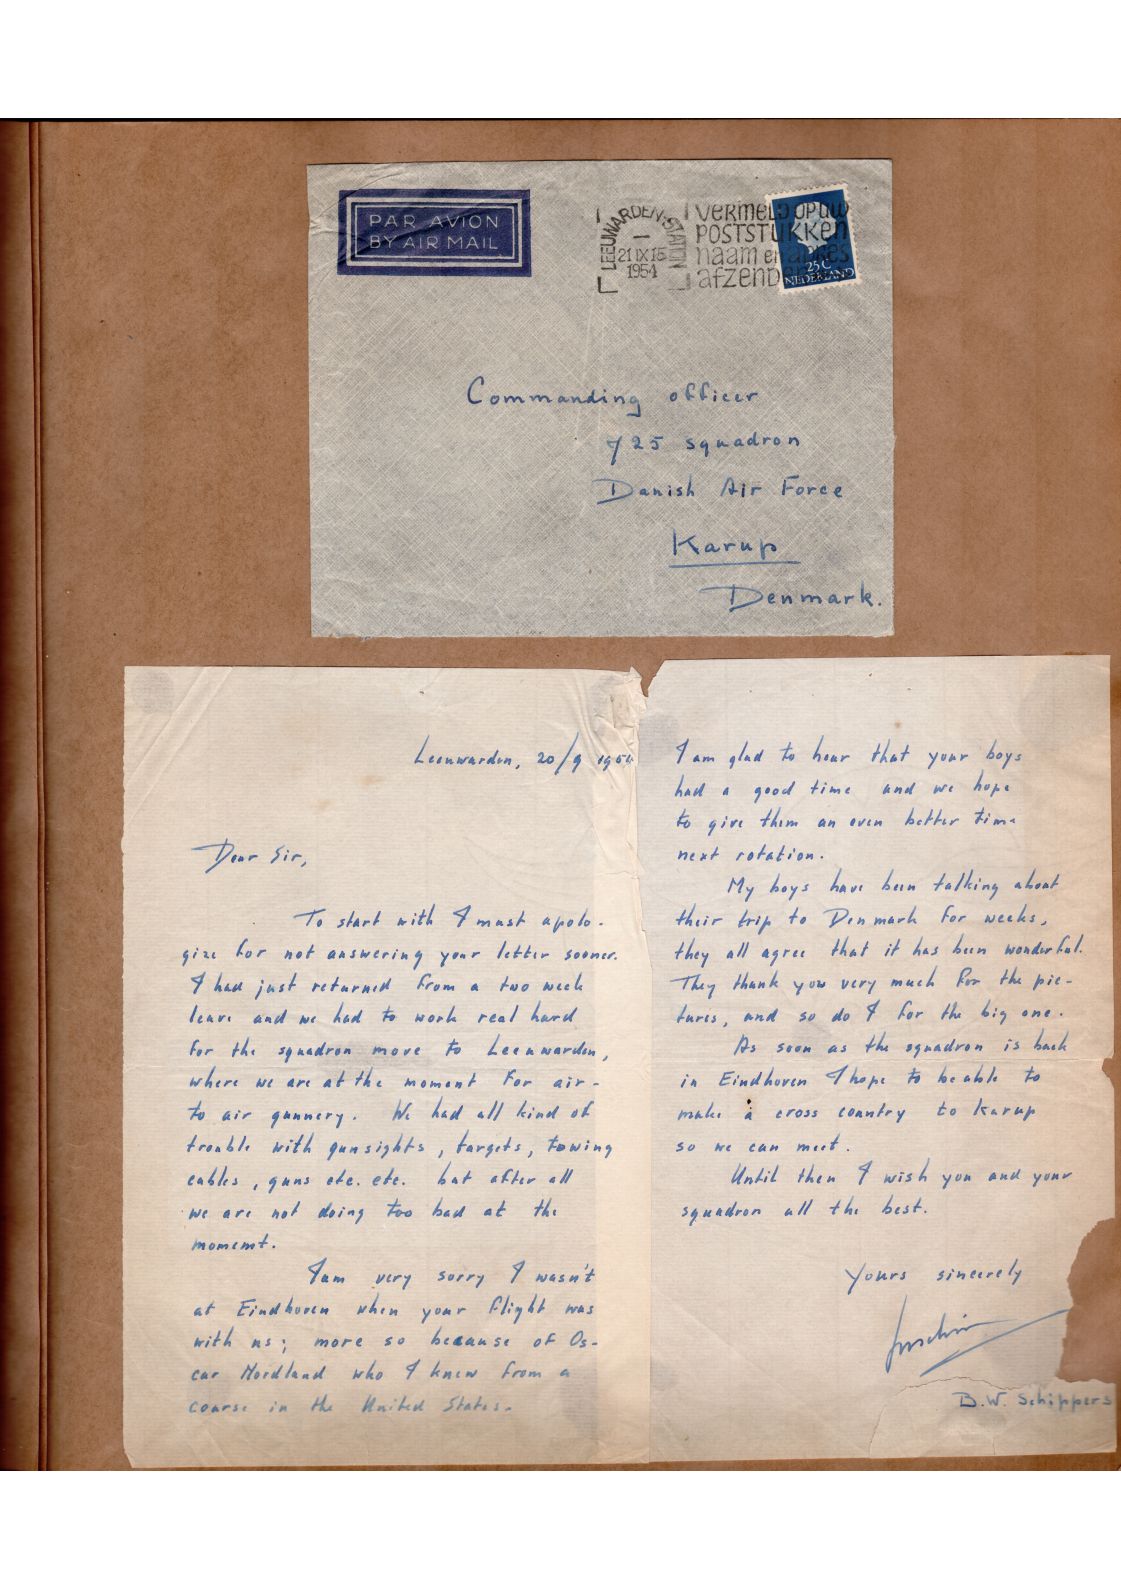 PAR AVION
BY AIR MAIL
LEEUWARDEN-STATION
21 IX 15
1954
VERMELD OP UW
POSTSTUKKEN
naam en adres
afzender
25 C
NEDERLAND
Commanding officer
725 squadron
Danish Air Force
Karup
Denmark.
Leeuwarden, 20/9 1954
Dear Sir,
To start with I must apolo-
gize for not answering your letter sooner.
I had just returned from a two week
leave and we had to work real hard
for the squadron move to Leeuwarden,
where we are at the moment for air-
to air gunnery. We had all kind of
trouble with gunsights, targets, towing
cables, guns etc. etc. but after all
we are not doing too bad at the
moment.
I am very sorry I wasn't
at Eindhoven when your flight was
with us; more so because of Os-
car Nordland who I knew from a
course in the United States.
I am glad to hear that your boys
had a good time and we hope
to give them an even better time
next rotation.
My boys have been talking about
their trip to Denmark for weeks,
they all agree that it has been wonderful.
They thank you very much for the pic-
tures, and so do I for the big one.
As soon as the squadron is back
in Eindhoven I hope to be able to
make a cross country to Karup
so we can meet.
Until then I wish you and your
squadron all the best.
Yours sincerely
B.W. Schippers